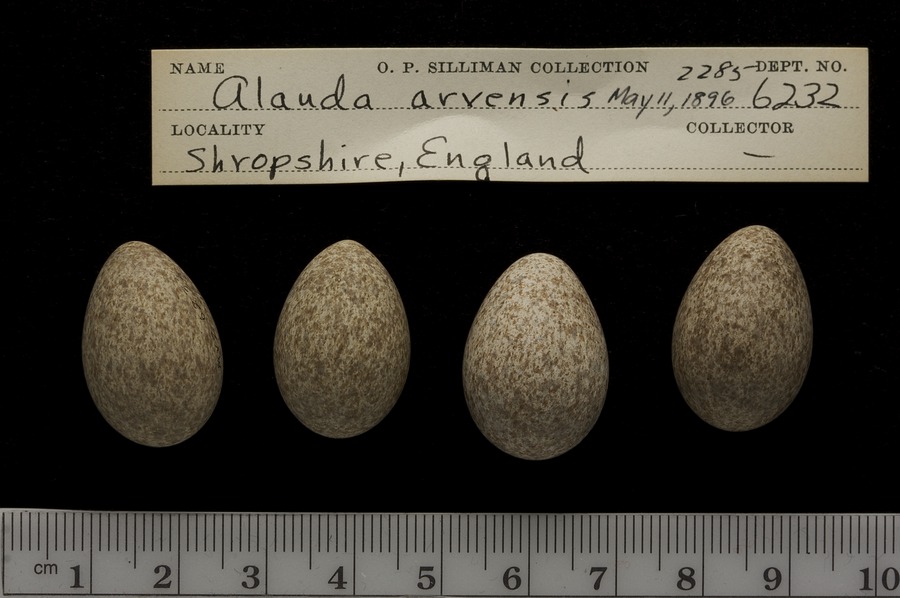 NAME O. P. SILLIMAN COLLECTION 2285 DEPT. NO.
Alauda arvensis May 11, 1896 6232
LOCALITY COLLECTOR
Shropshire, England —
cm 1 2 3 4 5 6 7 8 9 10